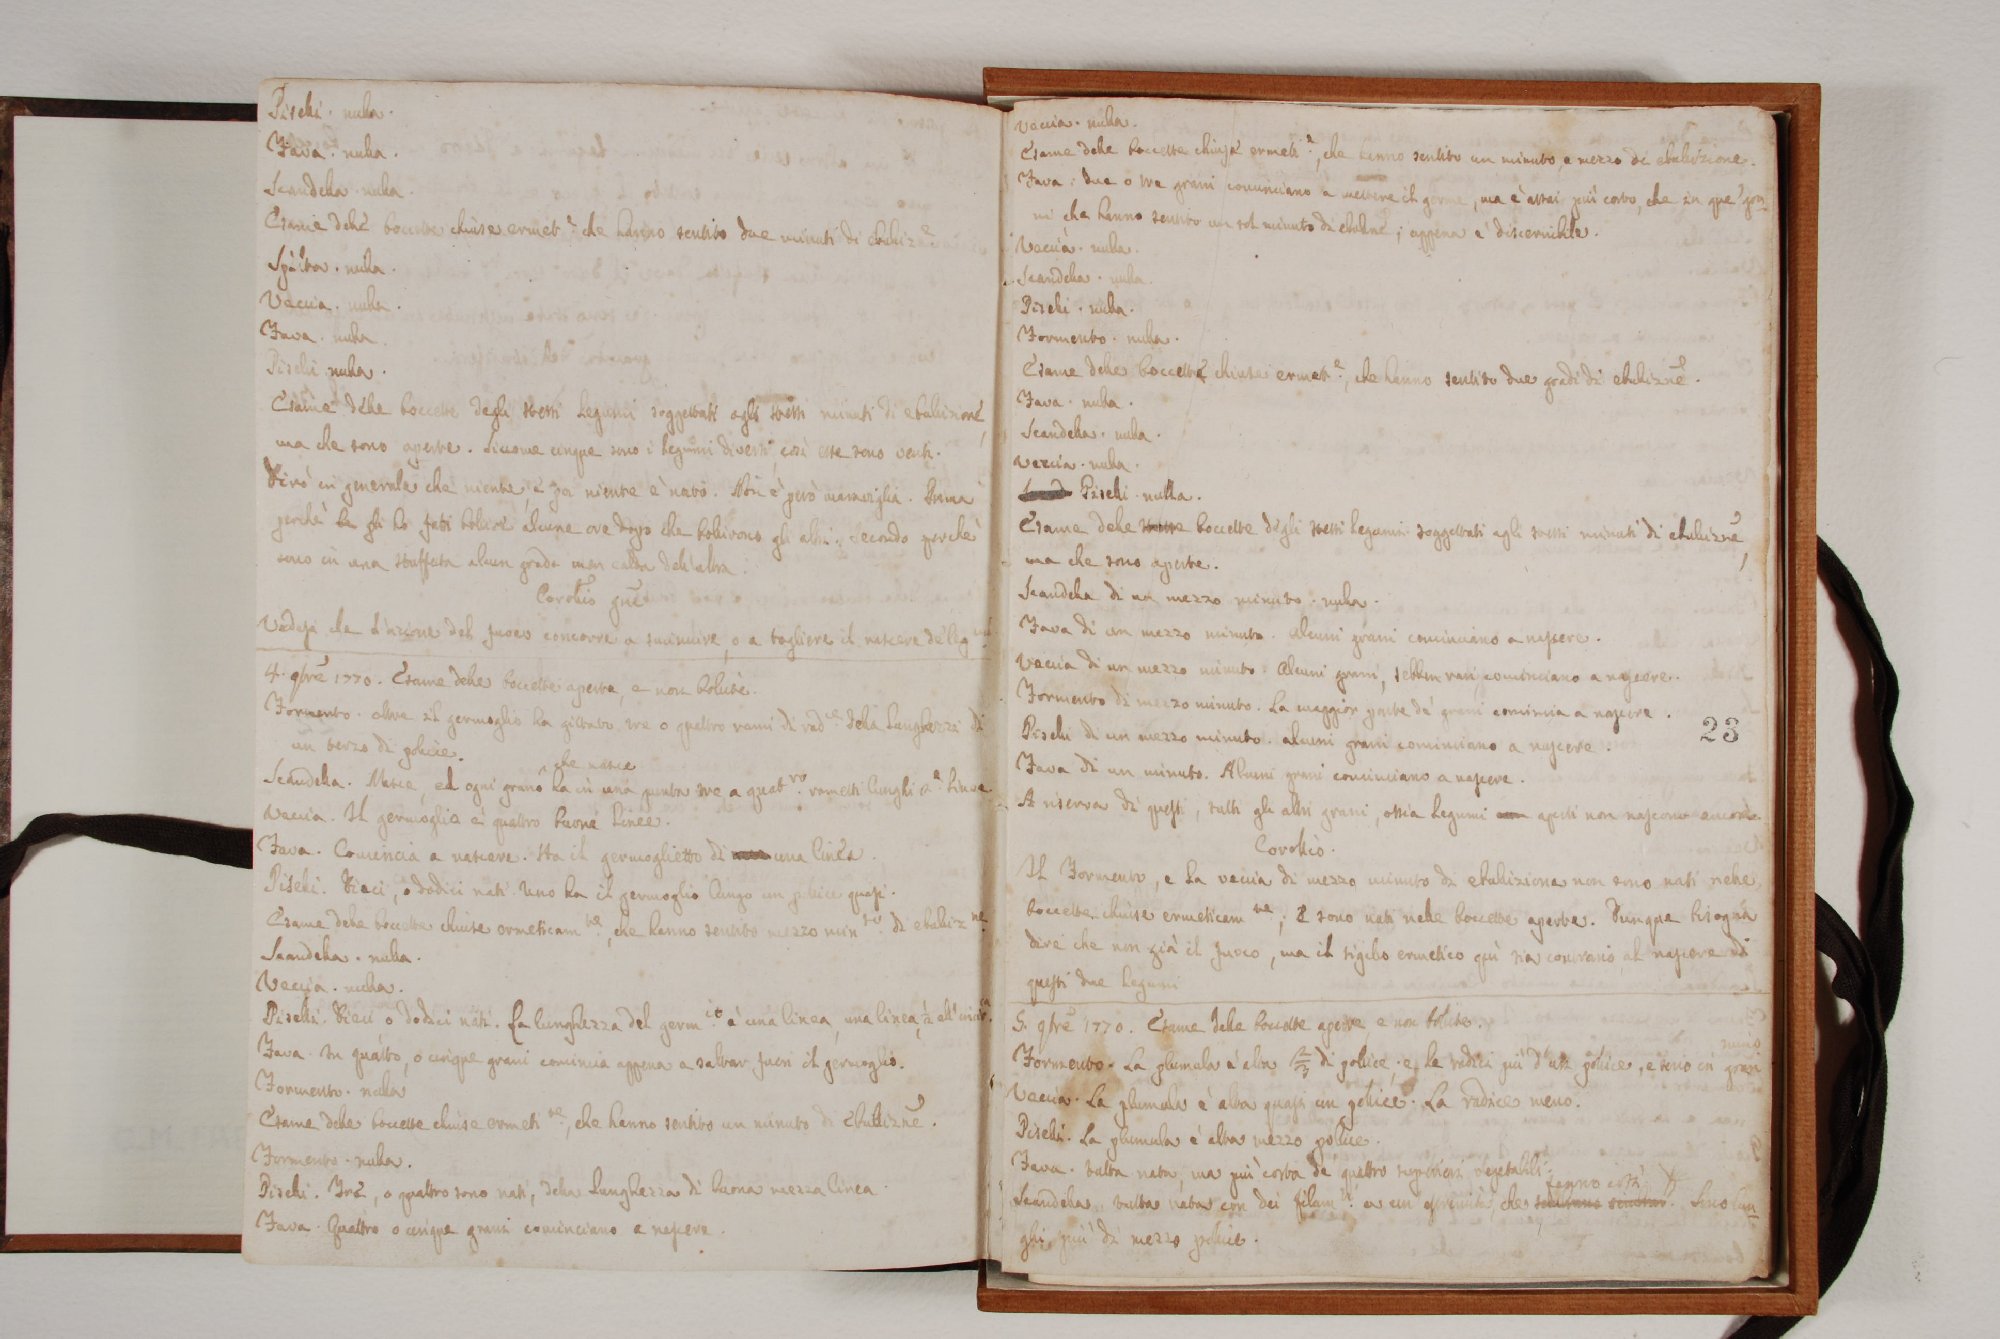 Piselli. nulla.
Fava. nulla.
Scandella. nulla.
Esame delle boccette chiuse ermet.e che hanno sentito due minuti di ebuliz.e
Spelta. nulla.
Veccia. nulla.
Fava. nulla.
Piselli nulla.
Esame delle boccette degli stessi legumi soggettati agli stessi minuti di ebulizione,
ma che sono aperte. Siccome cinque sono i legumi diversi, così esse sono venti.
Dirò in generale che niente, e poi niente è nato. Non è però maraviglia. Prima
perchè gli ho fatti bolire alcune ore dopo che bolirono gli altri. Secondo perchè
sono in una stuffetta alcun grado men calda dell'altra.
Corollio
Vedesi che l'azione del fuoco concorre a sminuire, o a togliere il nascere de' leg
4. 9bre 1770. Esame delle boccette aperte, e non bolite.
Formento. Oltre il germoglio ha gittato tre o quattro rami di rad.ce della lunghezza di
un terzo di police.
che nasce
Scandella. Nasce, ed ogni grano ha in una punta tre a quat.ro rametti lunghi linee
Veccia. Il germoglio è quattro buone linee.
Fava. Comincia a nascere. Ha il germoglietto di una linea.
Piselli. Dieci, o dodici nati. Uno ha il germoglio lungo un police quasi.
Esame delle boccette chiuse ermeticam.te, che hanno sentito mezzo min.to di ebuliz.ne
Scandella. nulla.
Veccia. nulla.
Piselli. Dieci o dodici nati. La lunghezza del germ.io è una linea, una linea, e
Fava. In quatto, o cinque grani comincia appena a saltar fuori il germoglio.
Formento. nulla
Esame delle boccette chiuse ermeti.te, che hanno sentito un minuto di ebulizne.
Formento. nulla.
Piselli. Tre, o quattro sono nati, della lunghezza di buona mezza linea.
Fava. Quattro o cinque grani cominciano a nascere.
Veccia. nulla.
Esame delle boccette chiuse ermeti.e, che hanno sentito un minuto, e mezzo di ebulizione.
Fava. due o tre grani cominciano a mettere il germe, ma è assai più corto, che in que' gra
ni che hanno sentito un sol minuto di ebulne; appena è discernibile.
Veccia. nulla.
Scandella. nulla
Piselli. nulla.
Formento. nulla.
Esame delle boccette chiuse ermeti.e, che hanno sentito due gradi di ebulizne.
Fava. nulla.
Scandella. nulla.
Veccia. nulla.
Piselli. nulla.
Esame delle boccette degli stessi legumi soggettati agli stessi minuti di ebulizne,
ma che sono aperte.
Scandella di un mezzo minuto. nulla.
Fava di un mezzo minuto. Alcuni grani cominciano a nascere.
Veccia di un mezzo minuto. Alcuni grani, sebben rari cominciano a nascere.
Formento di mezzo minuto. La maggior parte de' grani comincia a nascere.
Piselli di un mezzo minuto. Alcuni grani cominciano a nascere.
23
Fava di un minuto. Alcuni grani cominciano a nascere.
A riserva di questi, tutti gli altri grani, ossia legumi aperti non nascono ancora
Corollio.
Il Formento, e la veccia di mezzo minuto di ebulizione non sono nati nelle
boccette chiuse ermeticam.te; e sono nati nelle boccette aperte. Dunque bisogna
dire che non già il fuoco, ma il sigillo ermetico quì sia contrario al nascere di
questi due legumi
5. 9bre 1770. Esame delle boccette aperte e non bolite.
Formento. La plumula è alta 2/3 di police, e le radici più d'un police, e sono in gran
numo
Veccia. La plumula è alta quasi un police. La radice meno.
Piselli. La plumula è alta mezzo police.
Fava. tutta nata, ma più corta de' quattro superiori vegetabili.
Scandella. tutta nata con dei filam.ti a un' estremità, che. Sono lun
ghi più di mezzo police.